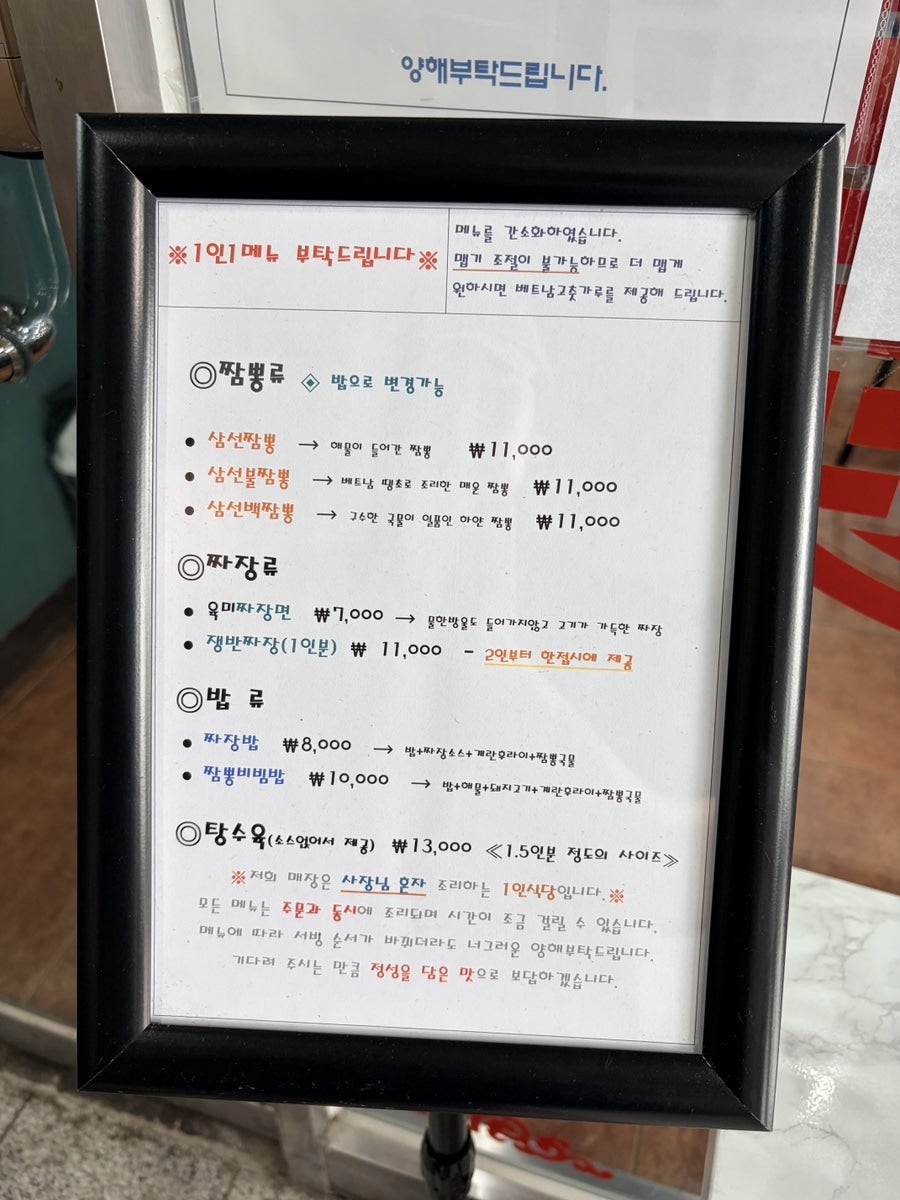 양해부탁드립니다.
※1인1메뉴 부탁드립니다※
메뉴를 간소화하였습니다.
맵기 조절이 불가능하므로 더 맵게
원하시면 베트남고춧가루를 제공해 드립니다.
◎짬뽕류 ◈ 밥으로 변경가능
● 삼선짬뽕 → 해물이 들어간 짬뽕 ₩11,000
● 삼선불짬뽕 → 베트남 땡초로 조리한 매운 짬뽕 ₩11,000
● 삼선백짬뽕 → 구수한 국물이 일품인 하얀 짬뽕 ₩11,000
◎짜장류
● 육미짜장면 ₩7,000 → 물한방울도 들어가지않고 고기가 가득한 짜장
● 쟁반짜장(1인분) ₩ 11,000 - 2인부터 한접시에 제공
◎밥 류
● 짜장밥 ₩8,000 → 밥+짜장소스+계란후라이+짬뽕국물
● 짬뽕비빔밥 ₩10,000 → 밥+해물+돼지고기+계란후라이+짬뽕국물
◎탕수육(소스얹어서 제공) ₩13,000 ≪1.5인분 정도의 사이즈≫
※저희 매장은 사장님 혼자 조리하는 1인식당입니다.※
모든 메뉴는 주문과 동시에 조리되며 시간이 조금 걸릴 수 있습니다.
메뉴에 따라 서빙 순서가 바뀌더라도 너그러운 양해부탁드립니다.
기다려 주시는 만큼 정성을 담은 맛으로 보답하겠습니다.